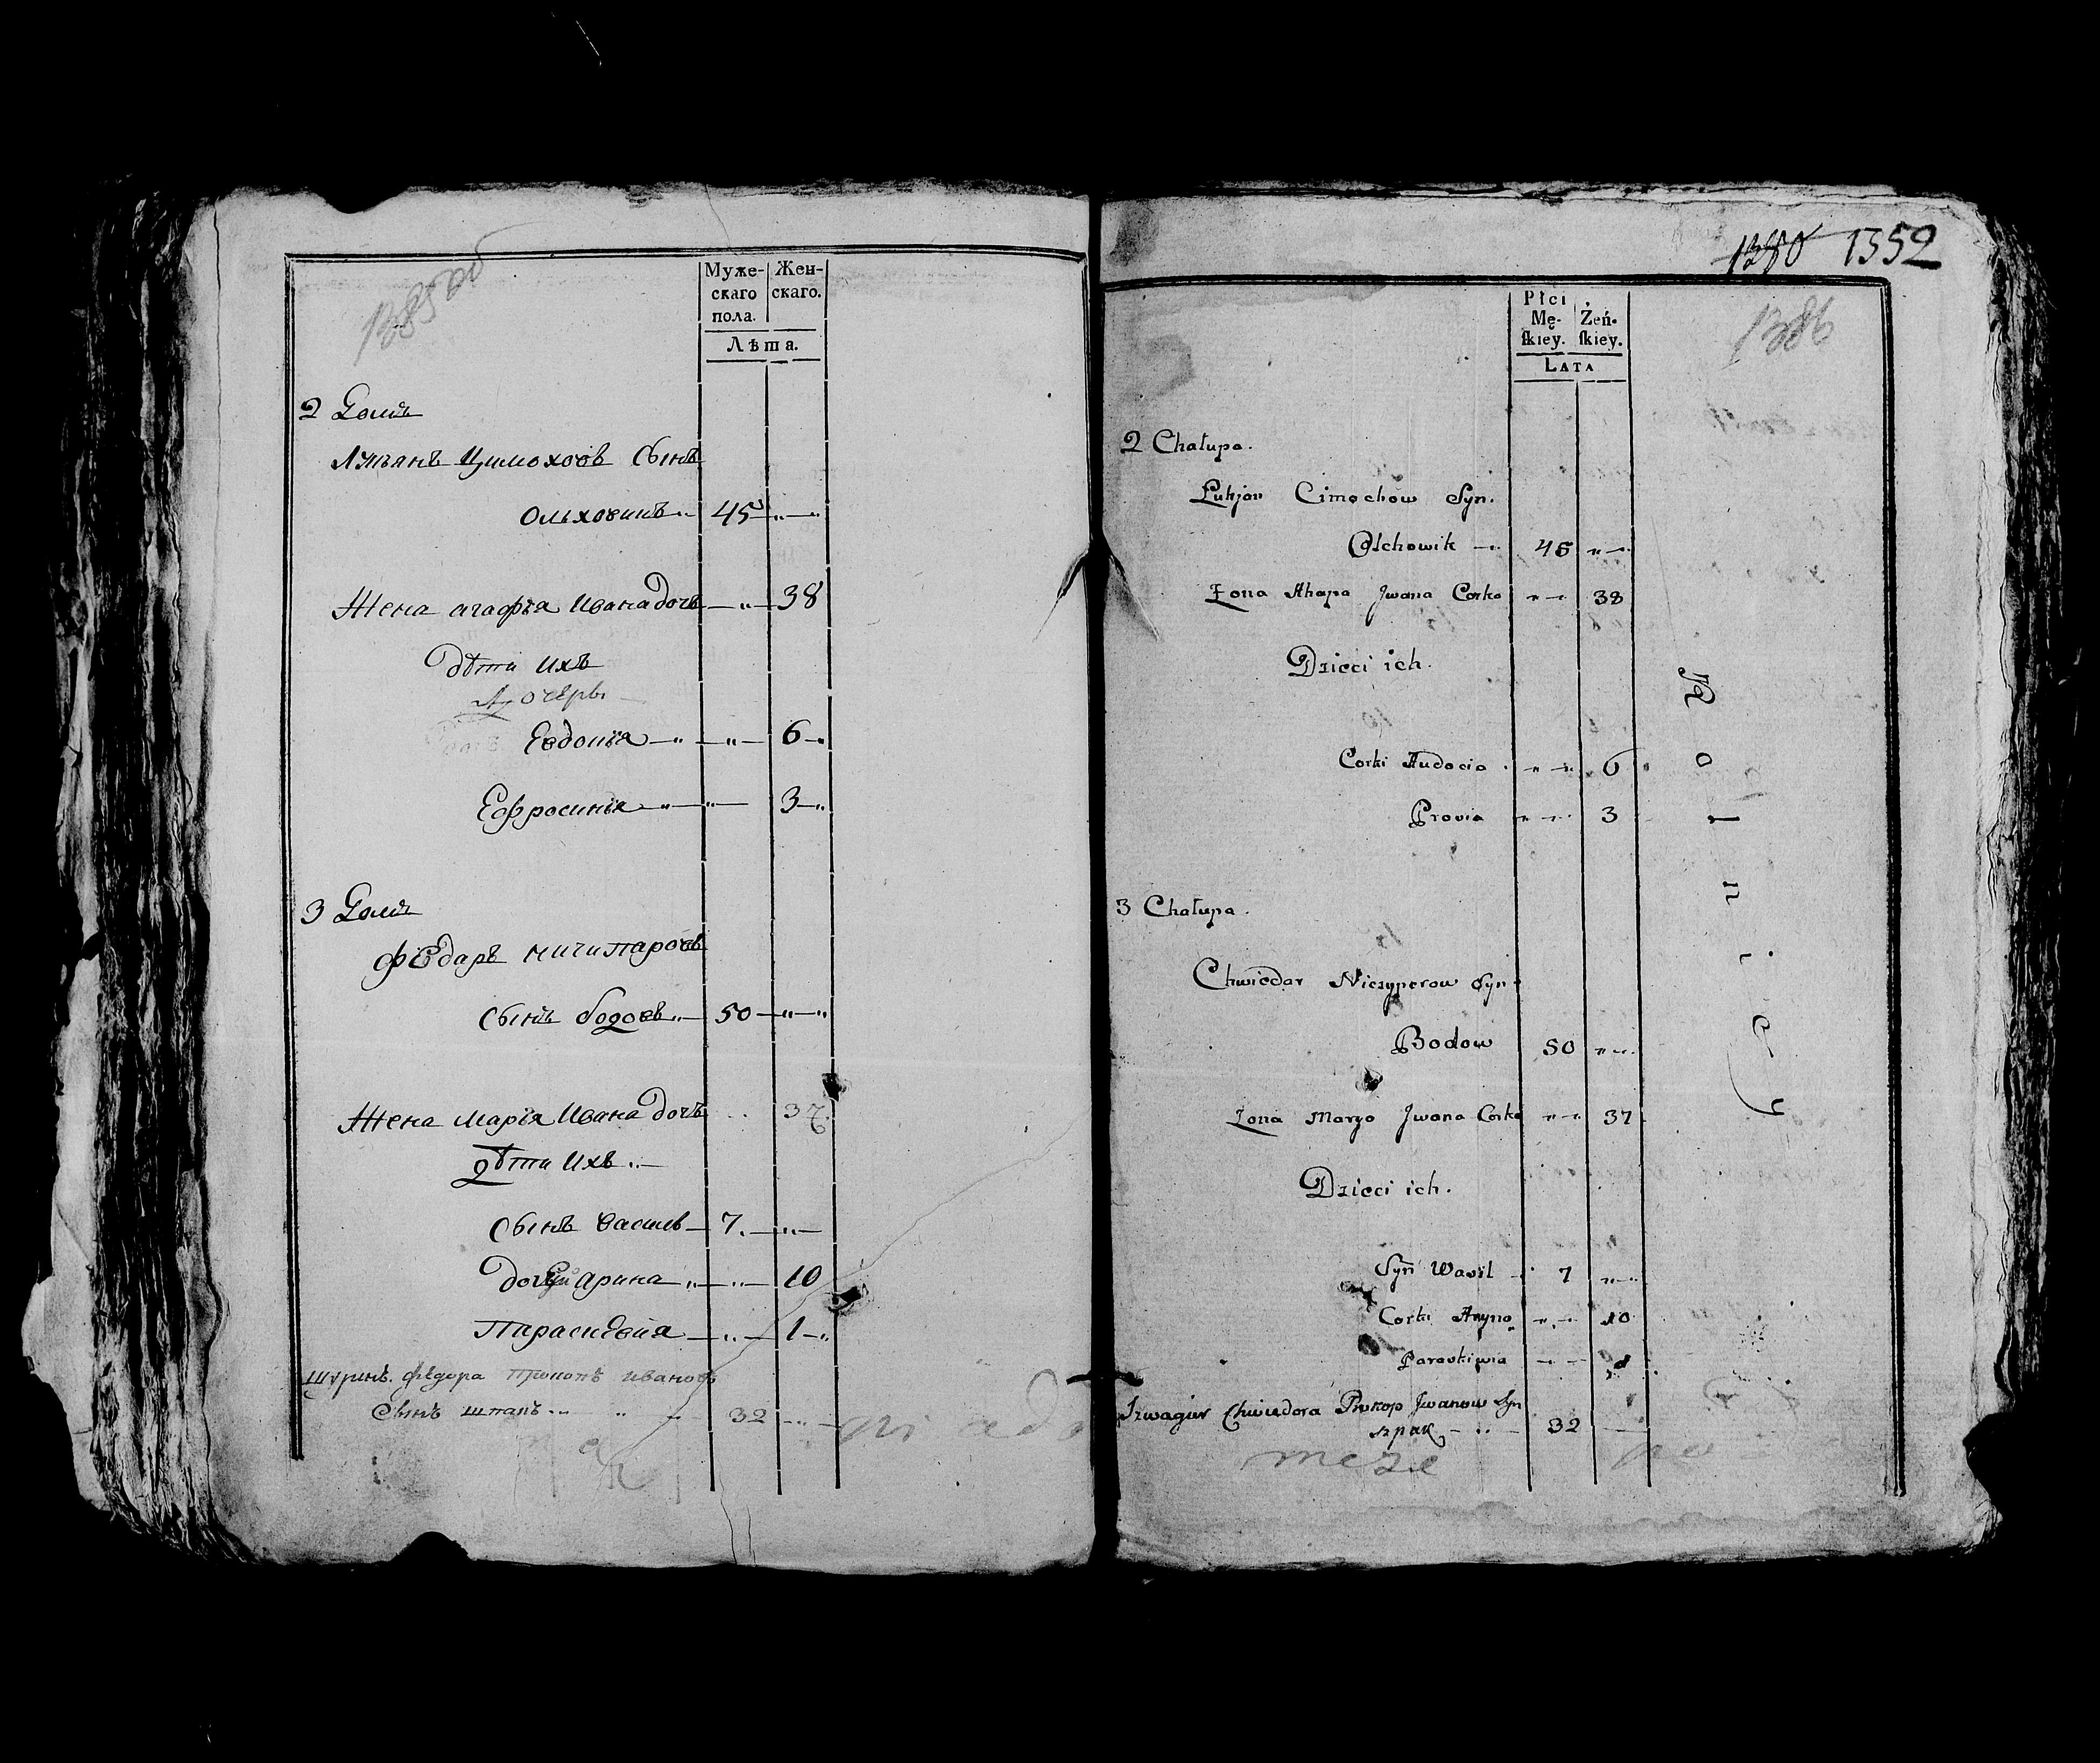 1385 об
Муже-
скаго
пола.
Жен-
скаго.
Лѣта.
2 Домъ
Лукьянъ Цимохов Сынъ
Ольховикъ 45
Жена агафья Ивана дочь 38
дѣти ихъ
дочеры
Евдокія 6
Ефросинья 3
3 Домъ
Фёдаръ ничипаровъ
сынъ бодовъ 50
Жена марія Ивана дочь 37
дѣти ихъ
сынъ васил 7
Арина 10
Параскевія 1
шуринъ фёдора прокопъ ивановъ
Сынъ шпакъ 32
1380 1352
1386
Płci
Mę-
ſkiey.
Żeń-
ſkiey.
LATA
2 Chałupa.
Łukjan Cimochow Syn.
Olchowik 45
Żona Ahapa Jwana Corka 38
Dzieci ich.
Corki Audocia 6
Prosia 3
3 Chałupa.
Chwiedar Niczyperow Syn
Bodow 50
Żona Marya Jwana Corka 37
Dzieci ich.
Syn Wasil 7
Corki Aryna 10
Paraskiwia 1
Szwagier Chwiedora Prokop Jwanow Syn
szpak 32
Rolniey